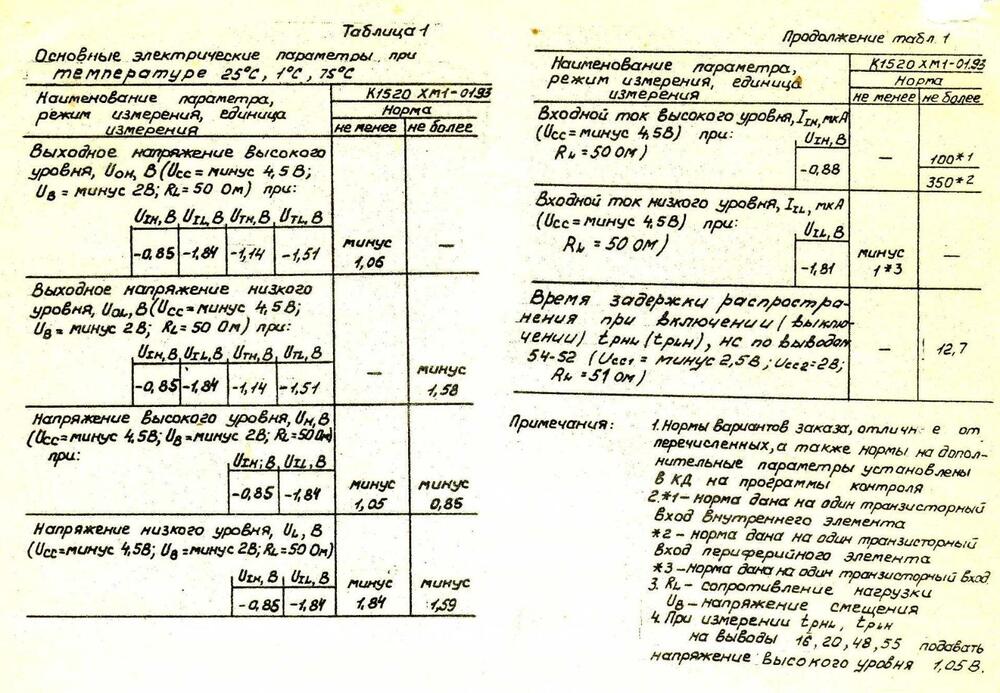 Таблица 1
Основные электрические параметры при
температуре 25°С, 1°С, 75°С
Наименование параметра,
режим измерения, единица
измерения
К1520 ХМ1-0193
Норма
не менее
не более
Выходное напряжение высокого
уровня, UOH, В (Ucc = минус 4,5 В;
UB = минус 2В; RL = 50 Ом) при:
UIH, В UIL, В UTH, В UTL, В
-0,85 -1,84 -1,14 -1,51
минус
1,06
—
Выходное напряжение низкого
уровня, UOL, В (Ucc = минус 4,5В;
UB = минус 2В; RL = 50 Ом) при:
UIH, В UIL, В UTH, В UTL, В
-0,85 -1,84 -1,14 -1,51
—
минус
1,58
Напряжение высокого уровня, UH, В
(Ucc = минус 4,5В; UB = минус 2В; RL = 50 Ом)
при:
UIH; В UIL, В
-0,85 -1,84
минус
1,05
минус
0,85
Напряжение низкого уровня, UL, В
(Ucc = минус 4,5В; UB = минус 2В; RL = 50 Ом)
UIH, В UIL, В
-0,85 -1,84
минус
1,84
минус
1,59
Продолжение табл. 1
Наименование параметра,
режим измерения, единица
измерения
К1520 ХМ1-0193
Норма
не менее
не более
Входной ток высокого уровня, IIH, мкА
(Ucc = минус 4,5В) при:
RL = 50 Ом)
UIH, В
-0,88
—
100*1
350*2
Входной ток низкого уровня, IIL, мкА
(Ucc = минус 4,5В) при:
RL = 50 Ом)
UIL, В
-1,81
минус
1*3
—
Время задержки распростра-
нения при включении (выклю-
чении) tPHL (tPLH), нс по выводам
54-52 (Ucc1 = минус 2,5В; Ucc2 = 2В;
RL = 51 Ом)
—
12,7
Примечания:
1. Нормы вариантов заказа, отличн е от
перечисленных, а также нормы на допол-
нительные параметры установлены
в КД на программы контроля
2. *1 – норма дана на один транзисторный
вход внутреннего элемента
*2 – норма дана на один транзисторный
вход периферийного элемента
*3 – норма дана на один транзисторный вход
3. RL – сопротивление нагрузки
UB – напряжение смещения
4. При измерении tPHL, tPLH
на выводы 16, 20, 48, 55 подавать
напряжение высокого уровня 1,05 В.